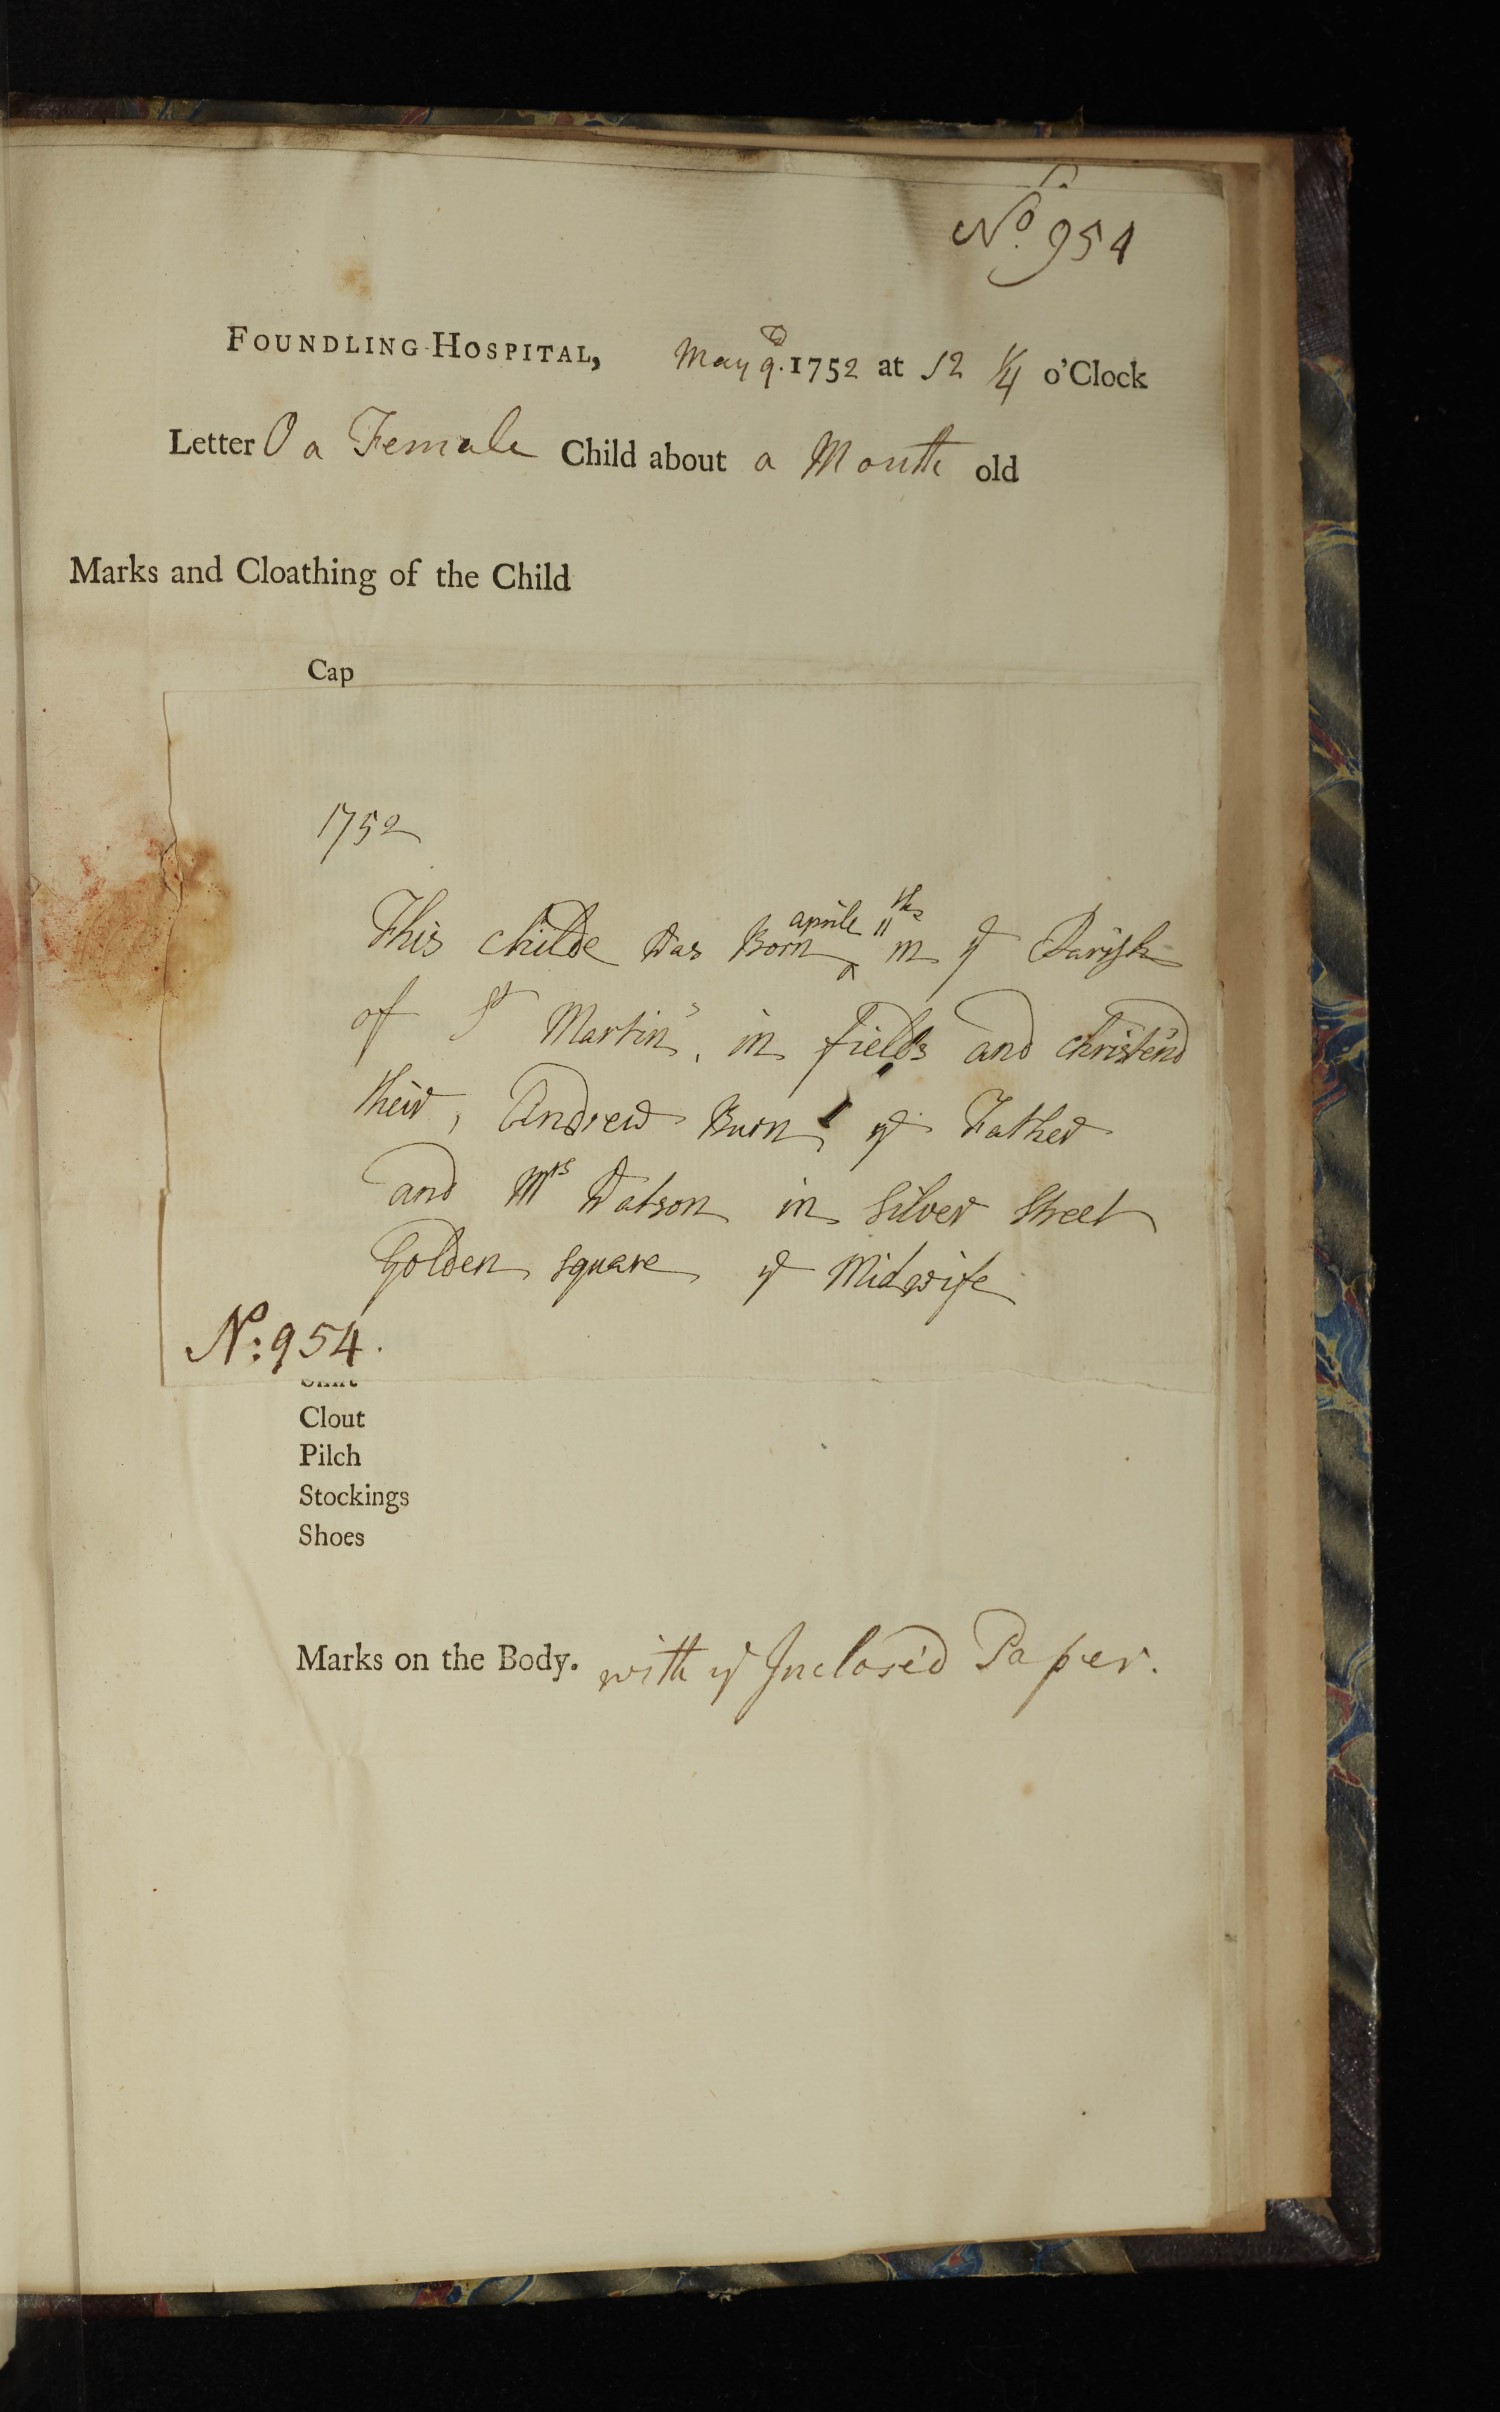 No. 954
FOUNDLING-HOSPITAL, May 9. 1752 at 12 1/4 o'Clock
Letter O a Female Child about a Month old
Marks and Cloathing of the Child
Cap
1752
This childe was Born aprile 11th in ye Parish
of St Martin's in fields and christ'end
their, Andrew Burn ye Father
and Mrs Watson in Silver Street
Golden Square ye Midwife
No: 954.
Clout
Pilch
Stockings
Shoes
Marks on the Body. with ye Inclos'd Paper.